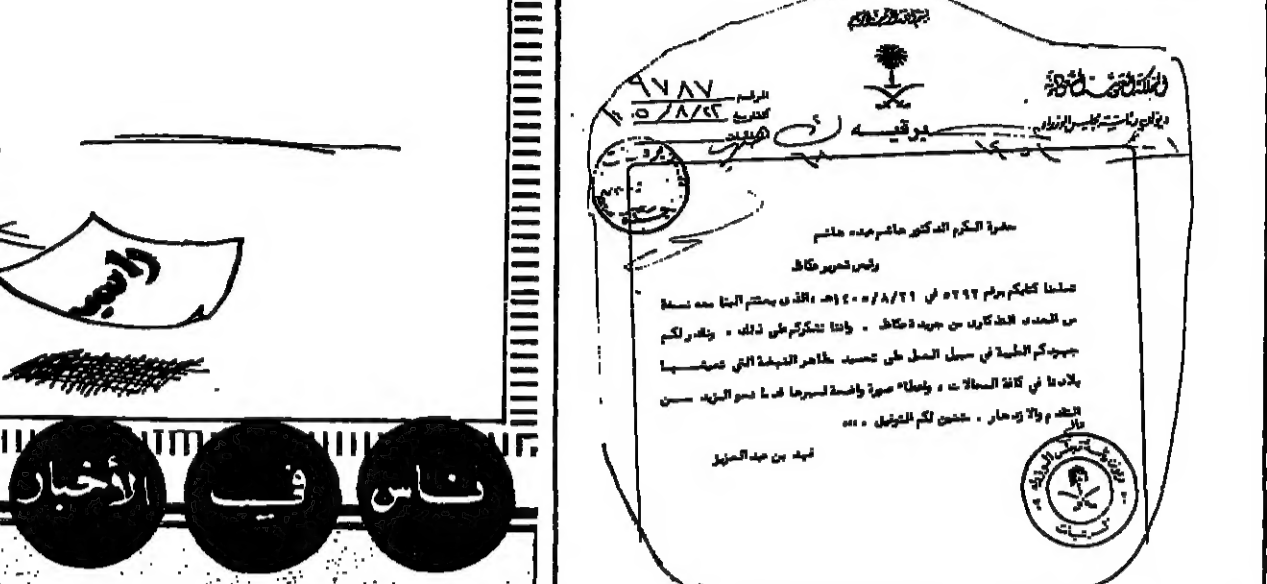 بسم الله الرحمن الرحيم
المملكة العربية السعودية
ديوان رئاسة مجلس الوزراء
الرقم ٩٧٨٧
التاريخ ٢٢/٨/
برقيه
حضرة المكرم الدكتور هاشم عبده هاشم
رئيس تحرير عكاظ
تسلمنا كتابكم برقم ٥٢٩٢ في ١٤٠٥/٨/٢١هـ الذي بعثتم الينا معه نسخة
من العدد التذكاري من جريدة عكاظ . واننا نشكركم على ذلك ، ونقدر لكم
جهودكم الطيبة في سبيل العمل على تجسيد مظاهر النهضة التي تعيشها
بلادنا في كافة المجالات ، واعطاء صورة واضحة لسيرها قدما نحو المزيد من
التقدم والازدهار . متمنين لكم التوفيق ،،،
فهد بن عبد العزيز
ديوان رئاسة مجلس الوزراء
برقيات
البريد
ناس في الأخبار